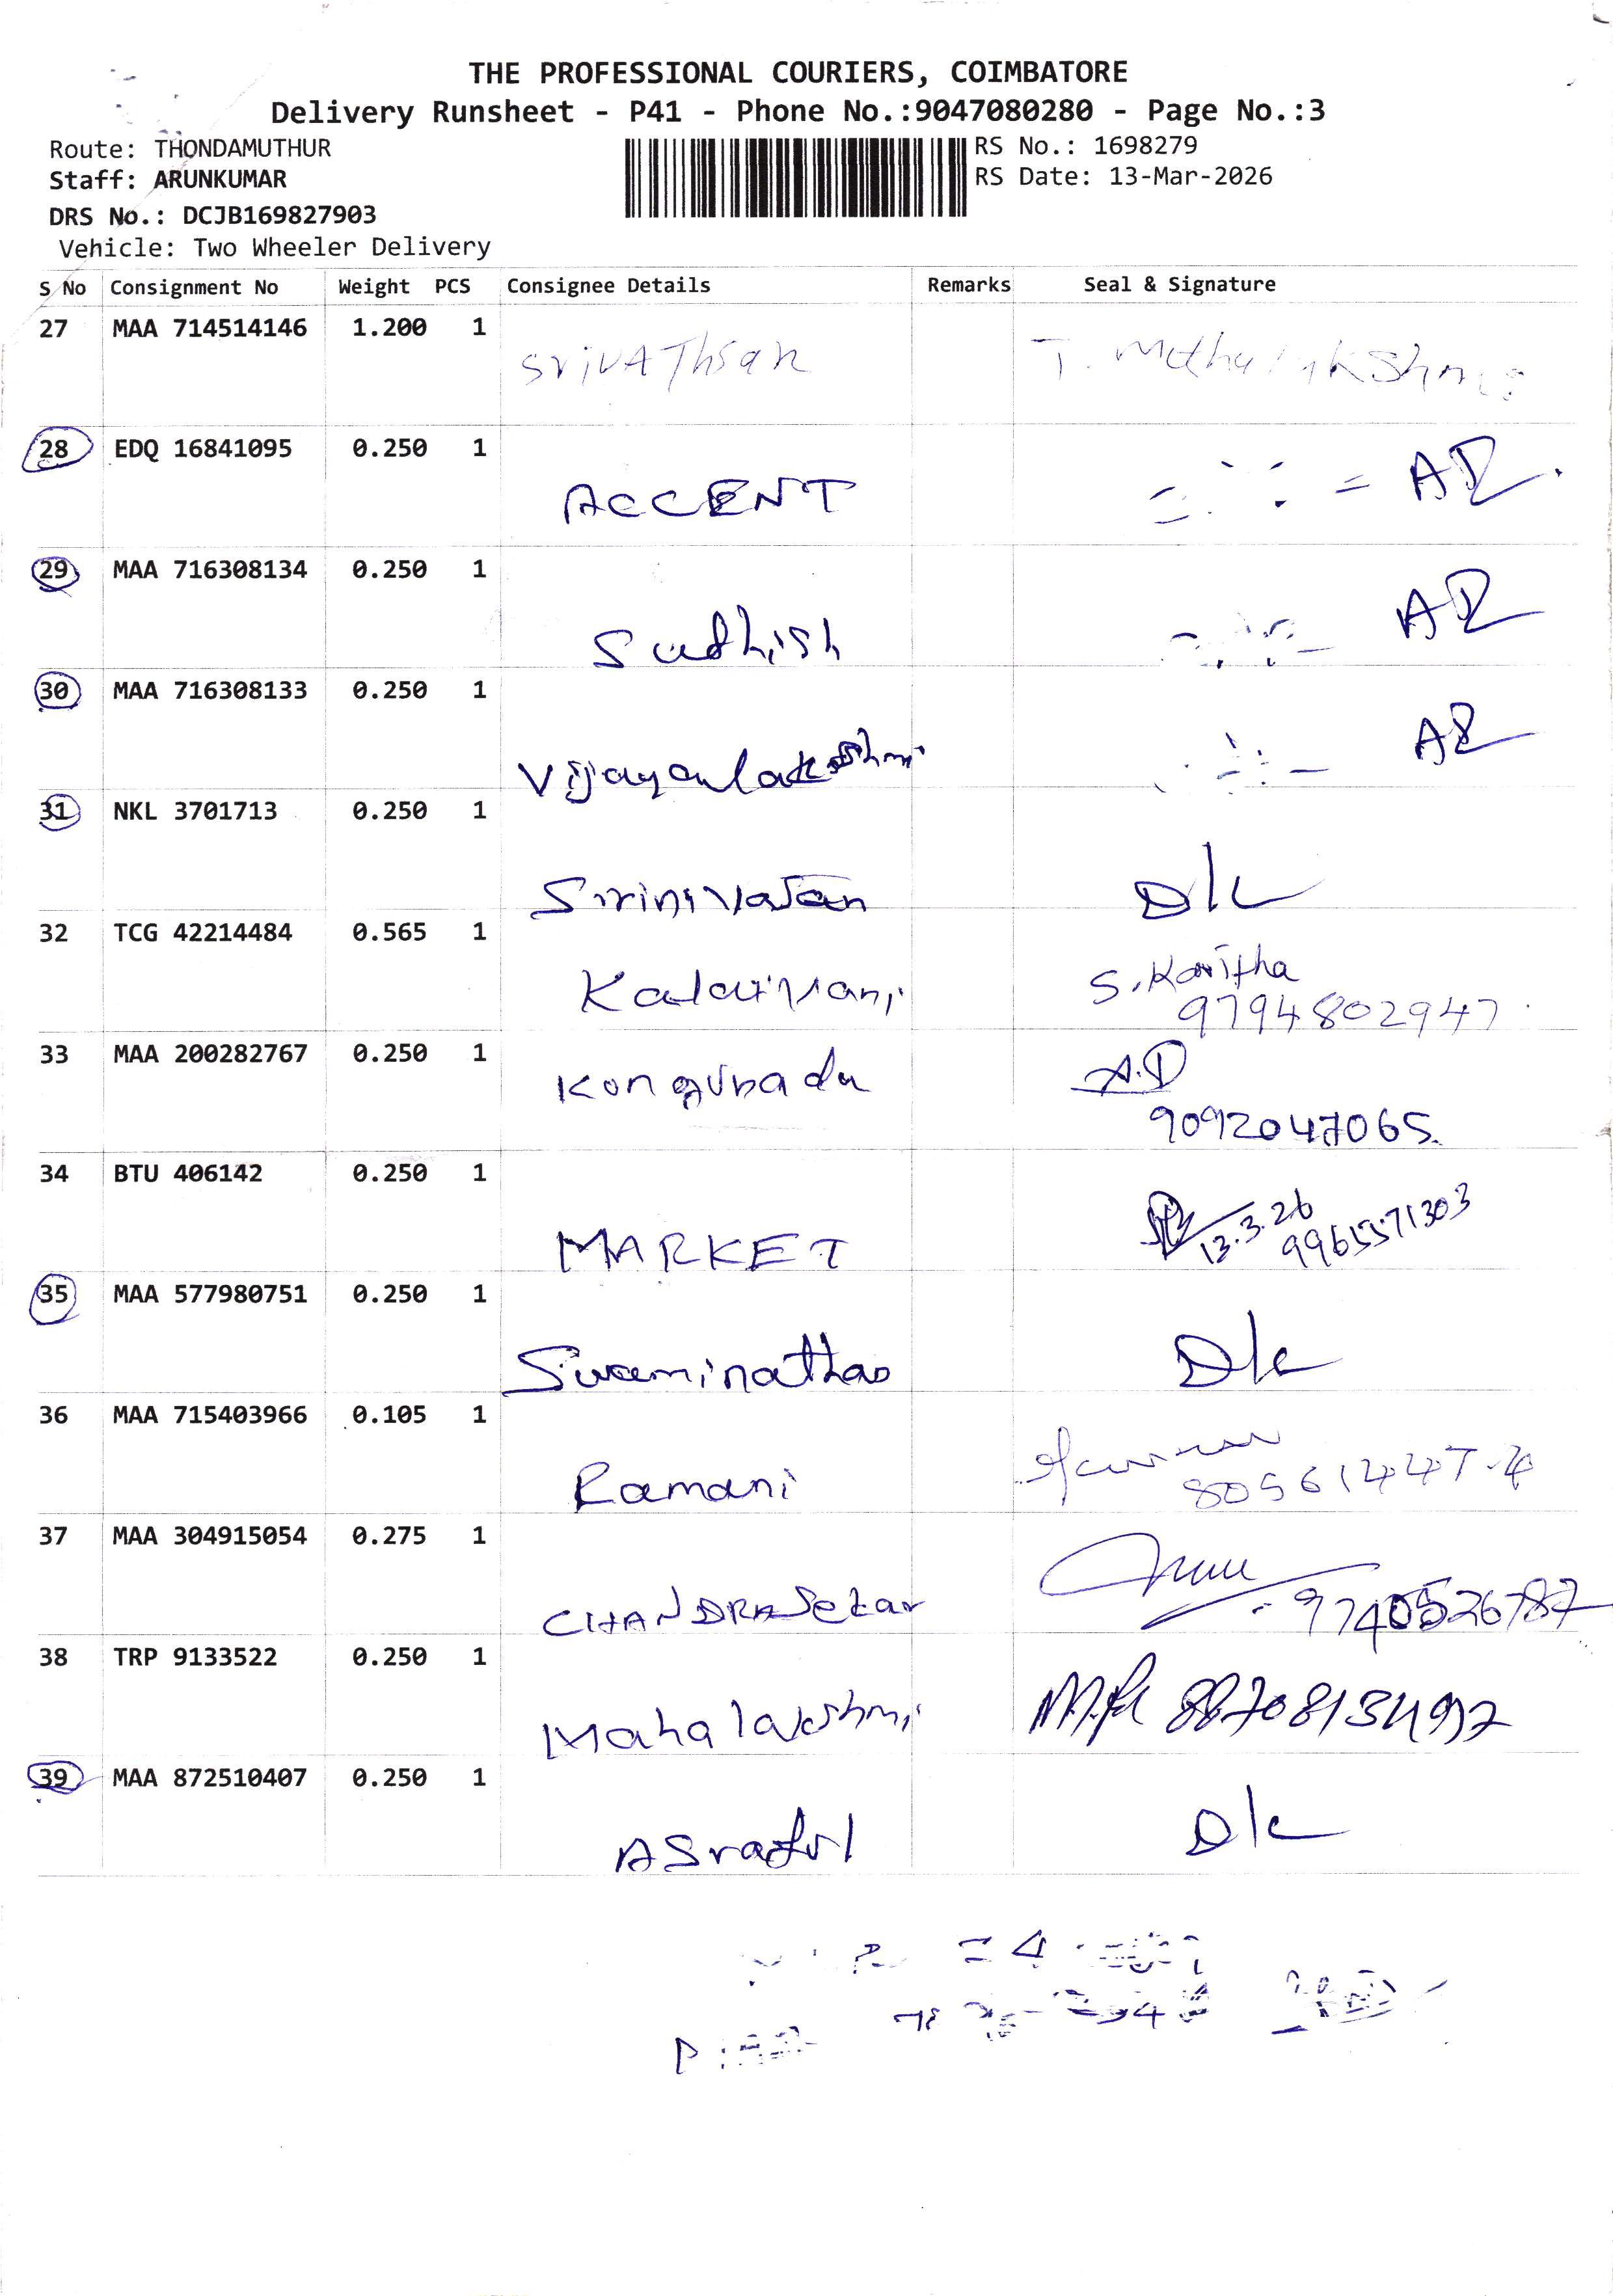 THE PROFESSIONAL COURIERS, COIMBATORE
Delivery Runsheet - P41 - Phone No.:9047080280 - Page No.:3
Route: THONDAMUTHUR
RS No.: 1698279
Staff: ARUNKUMAR
RS Date: 13-Mar-2026
DRS No.: DCJB169827903
Vehicle: Two Wheeler Delivery
S No Consignment No Weight PCS Consignee Details Remarks Seal & Signature
27 MAA 714514146 1.200 1
SrivAThsan
28 EDQ 16841095 0.250 1
ACCENT
29 MAA 716308134 0.250 1
Sudhish
30 MAA 716308133 0.250 1
31 NKL 3701713 0.250 1
D/c
32 TCG 42214484 0.565 1
Kalaivani S.Kavitha
9794802947
33 MAA 200282767 0.250 1
Kongunadu A.D
9092047065
34 BTU 406142 0.250 1
MARKET 13.3.26 9965571303
35 MAA 577980751 0.250 1
D/c
36 MAA 715403966 0.105 1
Ramani
37 MAA 304915054 0.275 1
CHANDRASekar 9740526787
38 TRP 9133522 0.250 1
Mahalakshmi
39 MAA 872510407 0.250 1
ASraful D/c